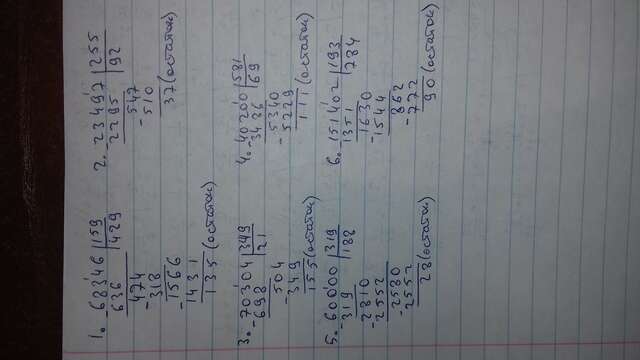 1. 68346 |159
-636 |429
474
-318
-1566
1431
135 (остаток)
2. 23497 |255
-2295 |92
547
-510
37 (остаток)
3. 70304 |349
-698 |21
504
-349
155 (остаток)
4. 40200 |581
-3486 |69
5340
-5229
111 (остаток)
5. 60000 |319
-319 |188
-2810
-2552
-2580
-2552
28 (остаток)
6. 151402 |193
-1351 |784
1630
-1544
862
-772
90 (остаток)